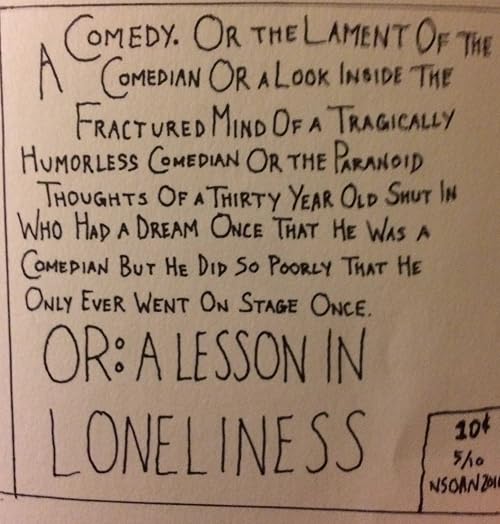 A COMEDY. OR THE LAMENT OF THE
COMEDIAN OR A LOOK INSIDE THE
FRACTURED MIND OF A TRAGICALLY
HUMORLESS COMEDIAN OR THE PARANOID
THOUGHTS OF A THIRTY YEAR OLD SHUT IN
WHO HAD A DREAM ONCE THAT HE WAS A
COMEDIAN BUT HE DID SO POORLY THAT HE
ONLY EVER WENT ON STAGE ONCE.
OR: A LESSON IN
LONELINESS
10¢
5/10